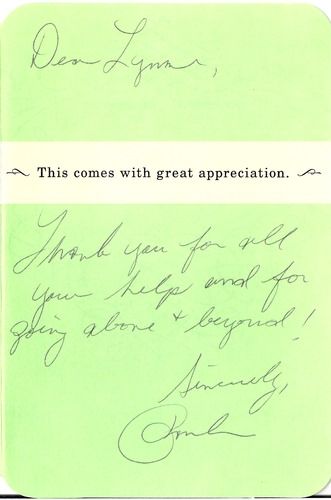 Dear Lynne,
This comes with great appreciation.
Thank you for all
your help and for
going above + beyond!
Sincerely,